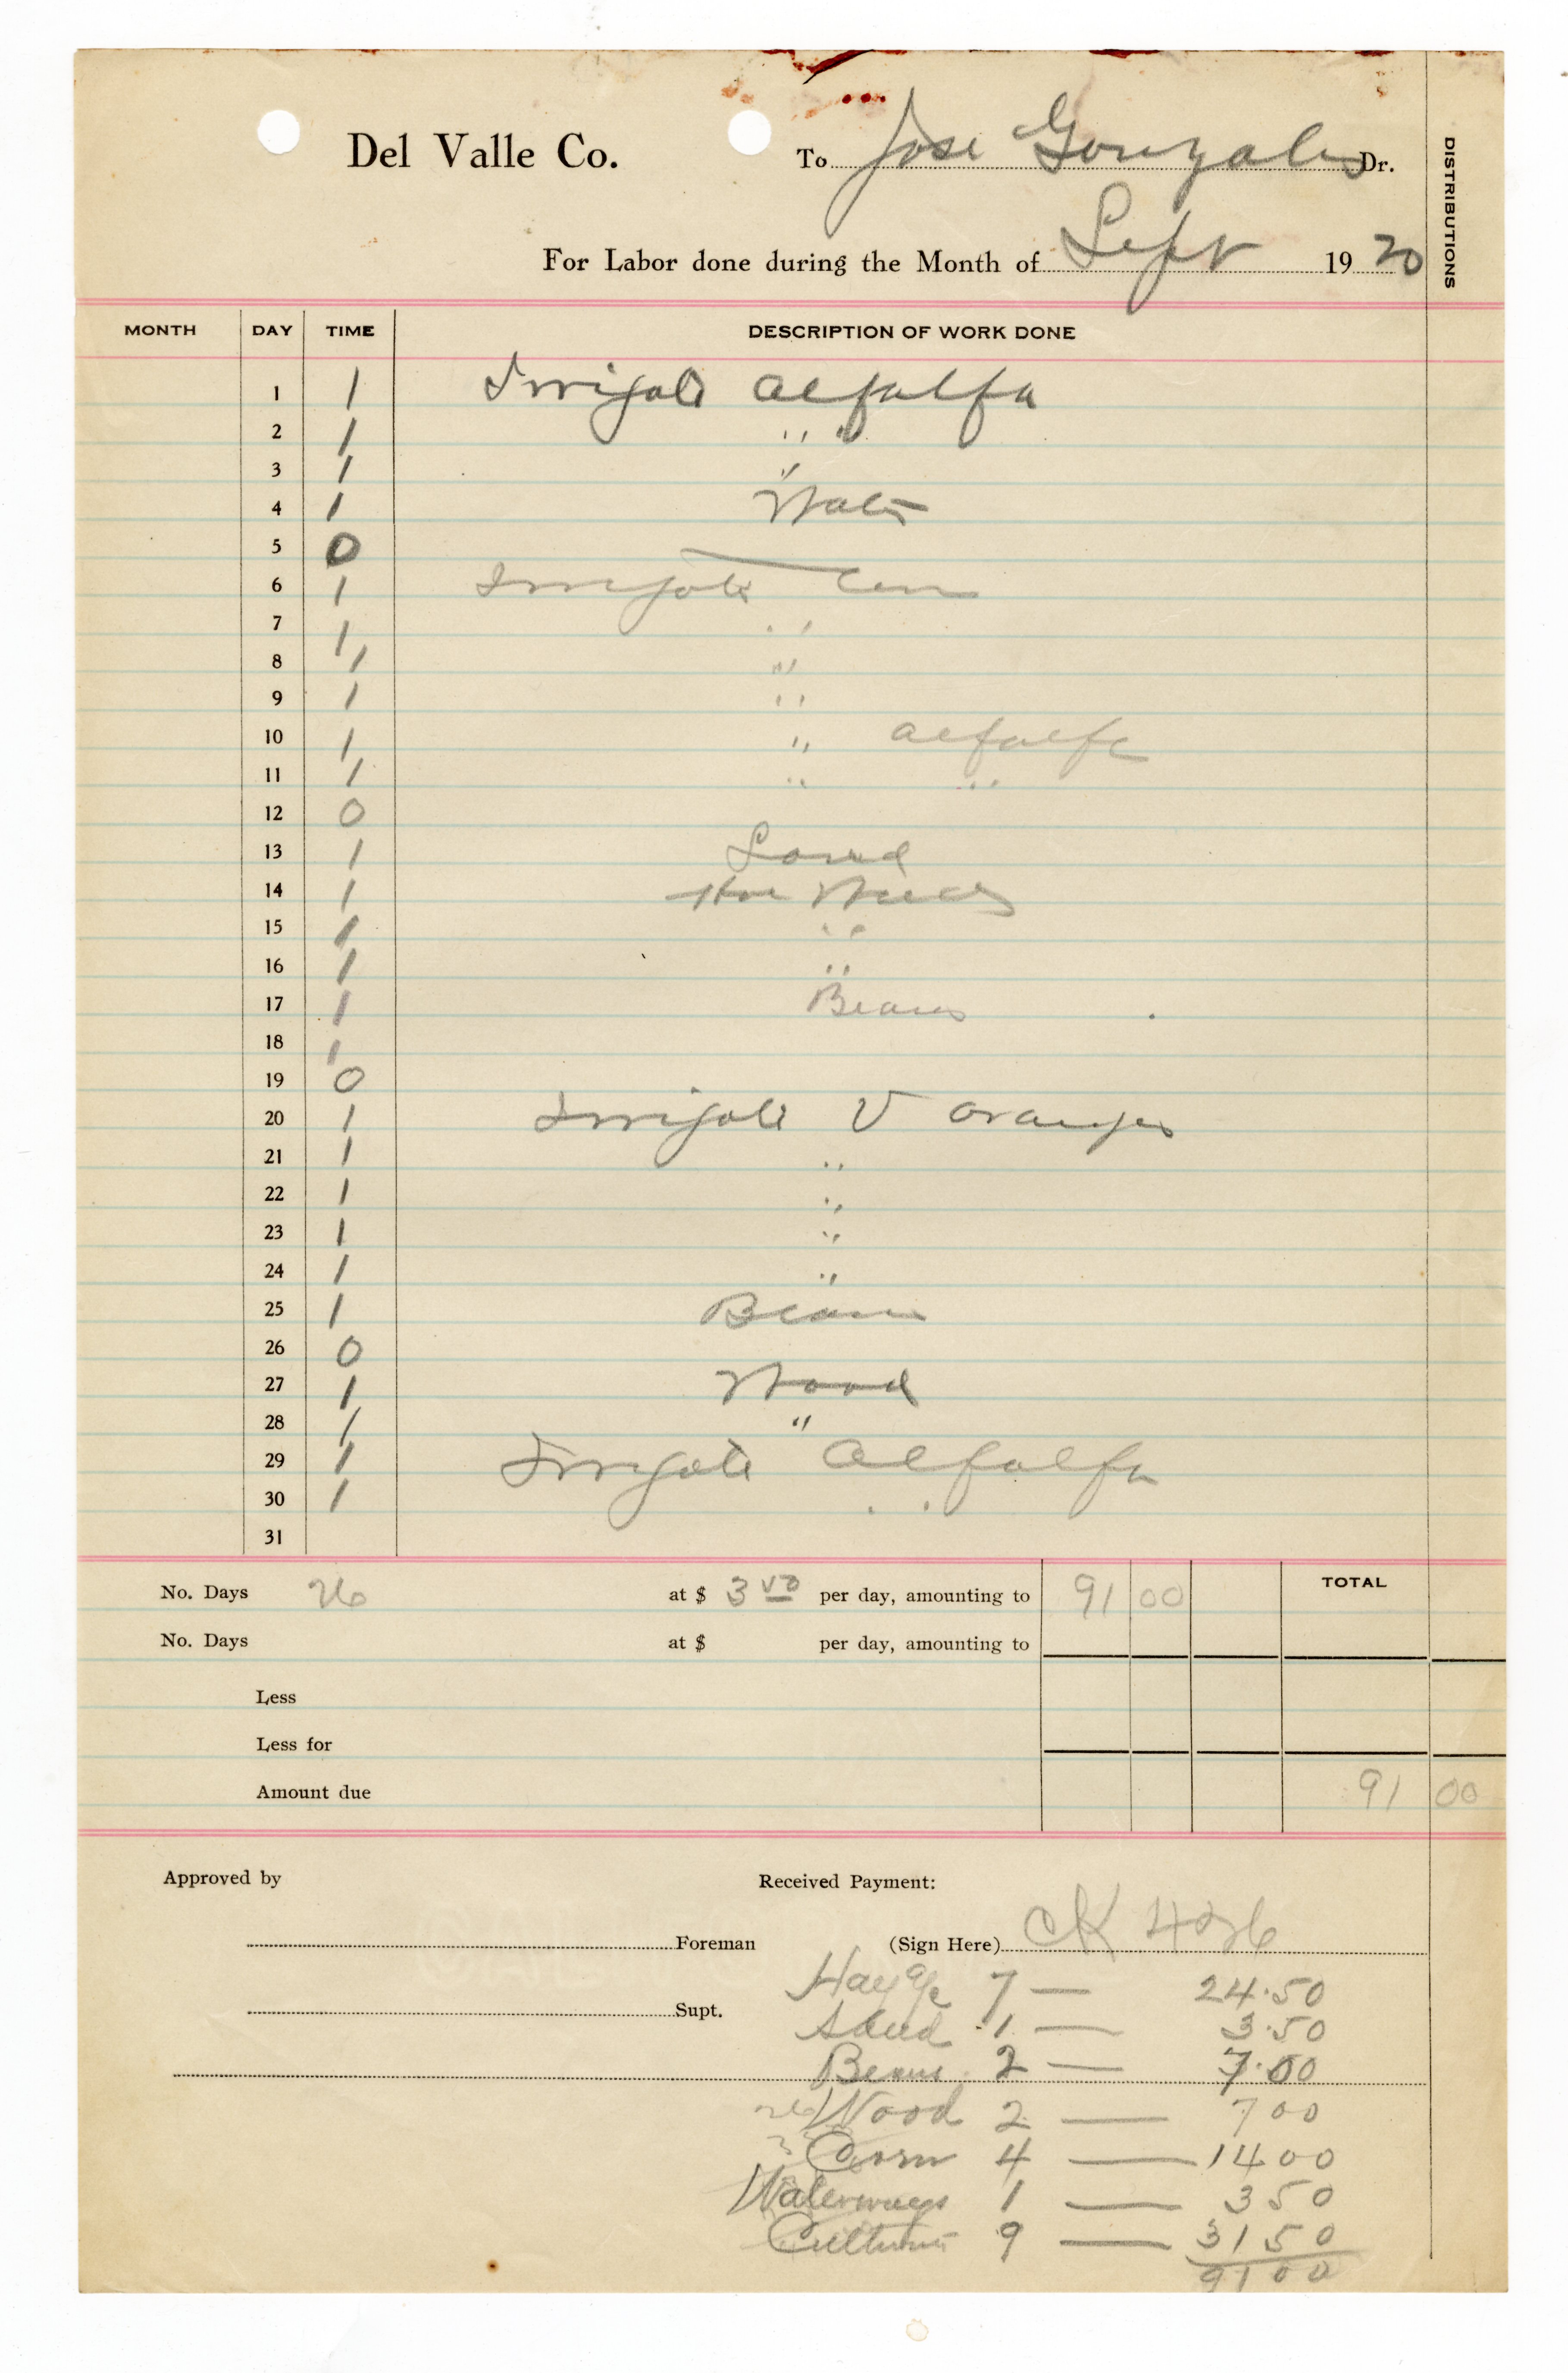 Del Valle Co. To Jose Gonzales Dr.
DISTRIBUTIONS
For Labor done during the Month of Sept 1920
MONTH DAY TIME DESCRIPTION OF WORK DONE
1 1 Irrigate alfalfa
2 1 " "
3 1 "
4 1 Water
5 0
6 1 Irrigate Corn
7 1 "
8 1 "
9 1 "
10 1 " alfalfa
11 1 " "
12 0
13 1
14 1 Hoe Weeds
15 1 "
16 1 "
17 1 Beans
18 1
19 0
20 1 Irrigate V oranges
21 1 "
22 1 "
23 1 "
24 1 "
25 1 Beans
26 0
27 1 Wood
28 1 "
29 1 Irrigate alfalfa
30 1 "
31
No. Days 26 at $ 3 50 per day, amounting to 91 00 TOTAL
No. Days at $ per day, amounting to
Less
Less for
Amount due 91 00
Approved by Received Payment:
Foreman (Sign Here) CK 426
Hay 7 — 24.50
Supt.
1 — 3.50
Beans 2 — 7.00
Wood 2 — 7 00
Corn 4 — 14 00
Waterways 1 — 3 50
9 — 31 50
91 00